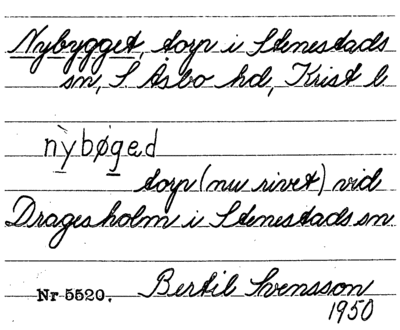 Nybygget, torp i Stenestads
sn, S Åsbo hd, Krist l.
nỳbøged
torp (nu rivet) vid
Dragesholm i Stenestads sn
Nr 5520. Bertil Svensson
1950